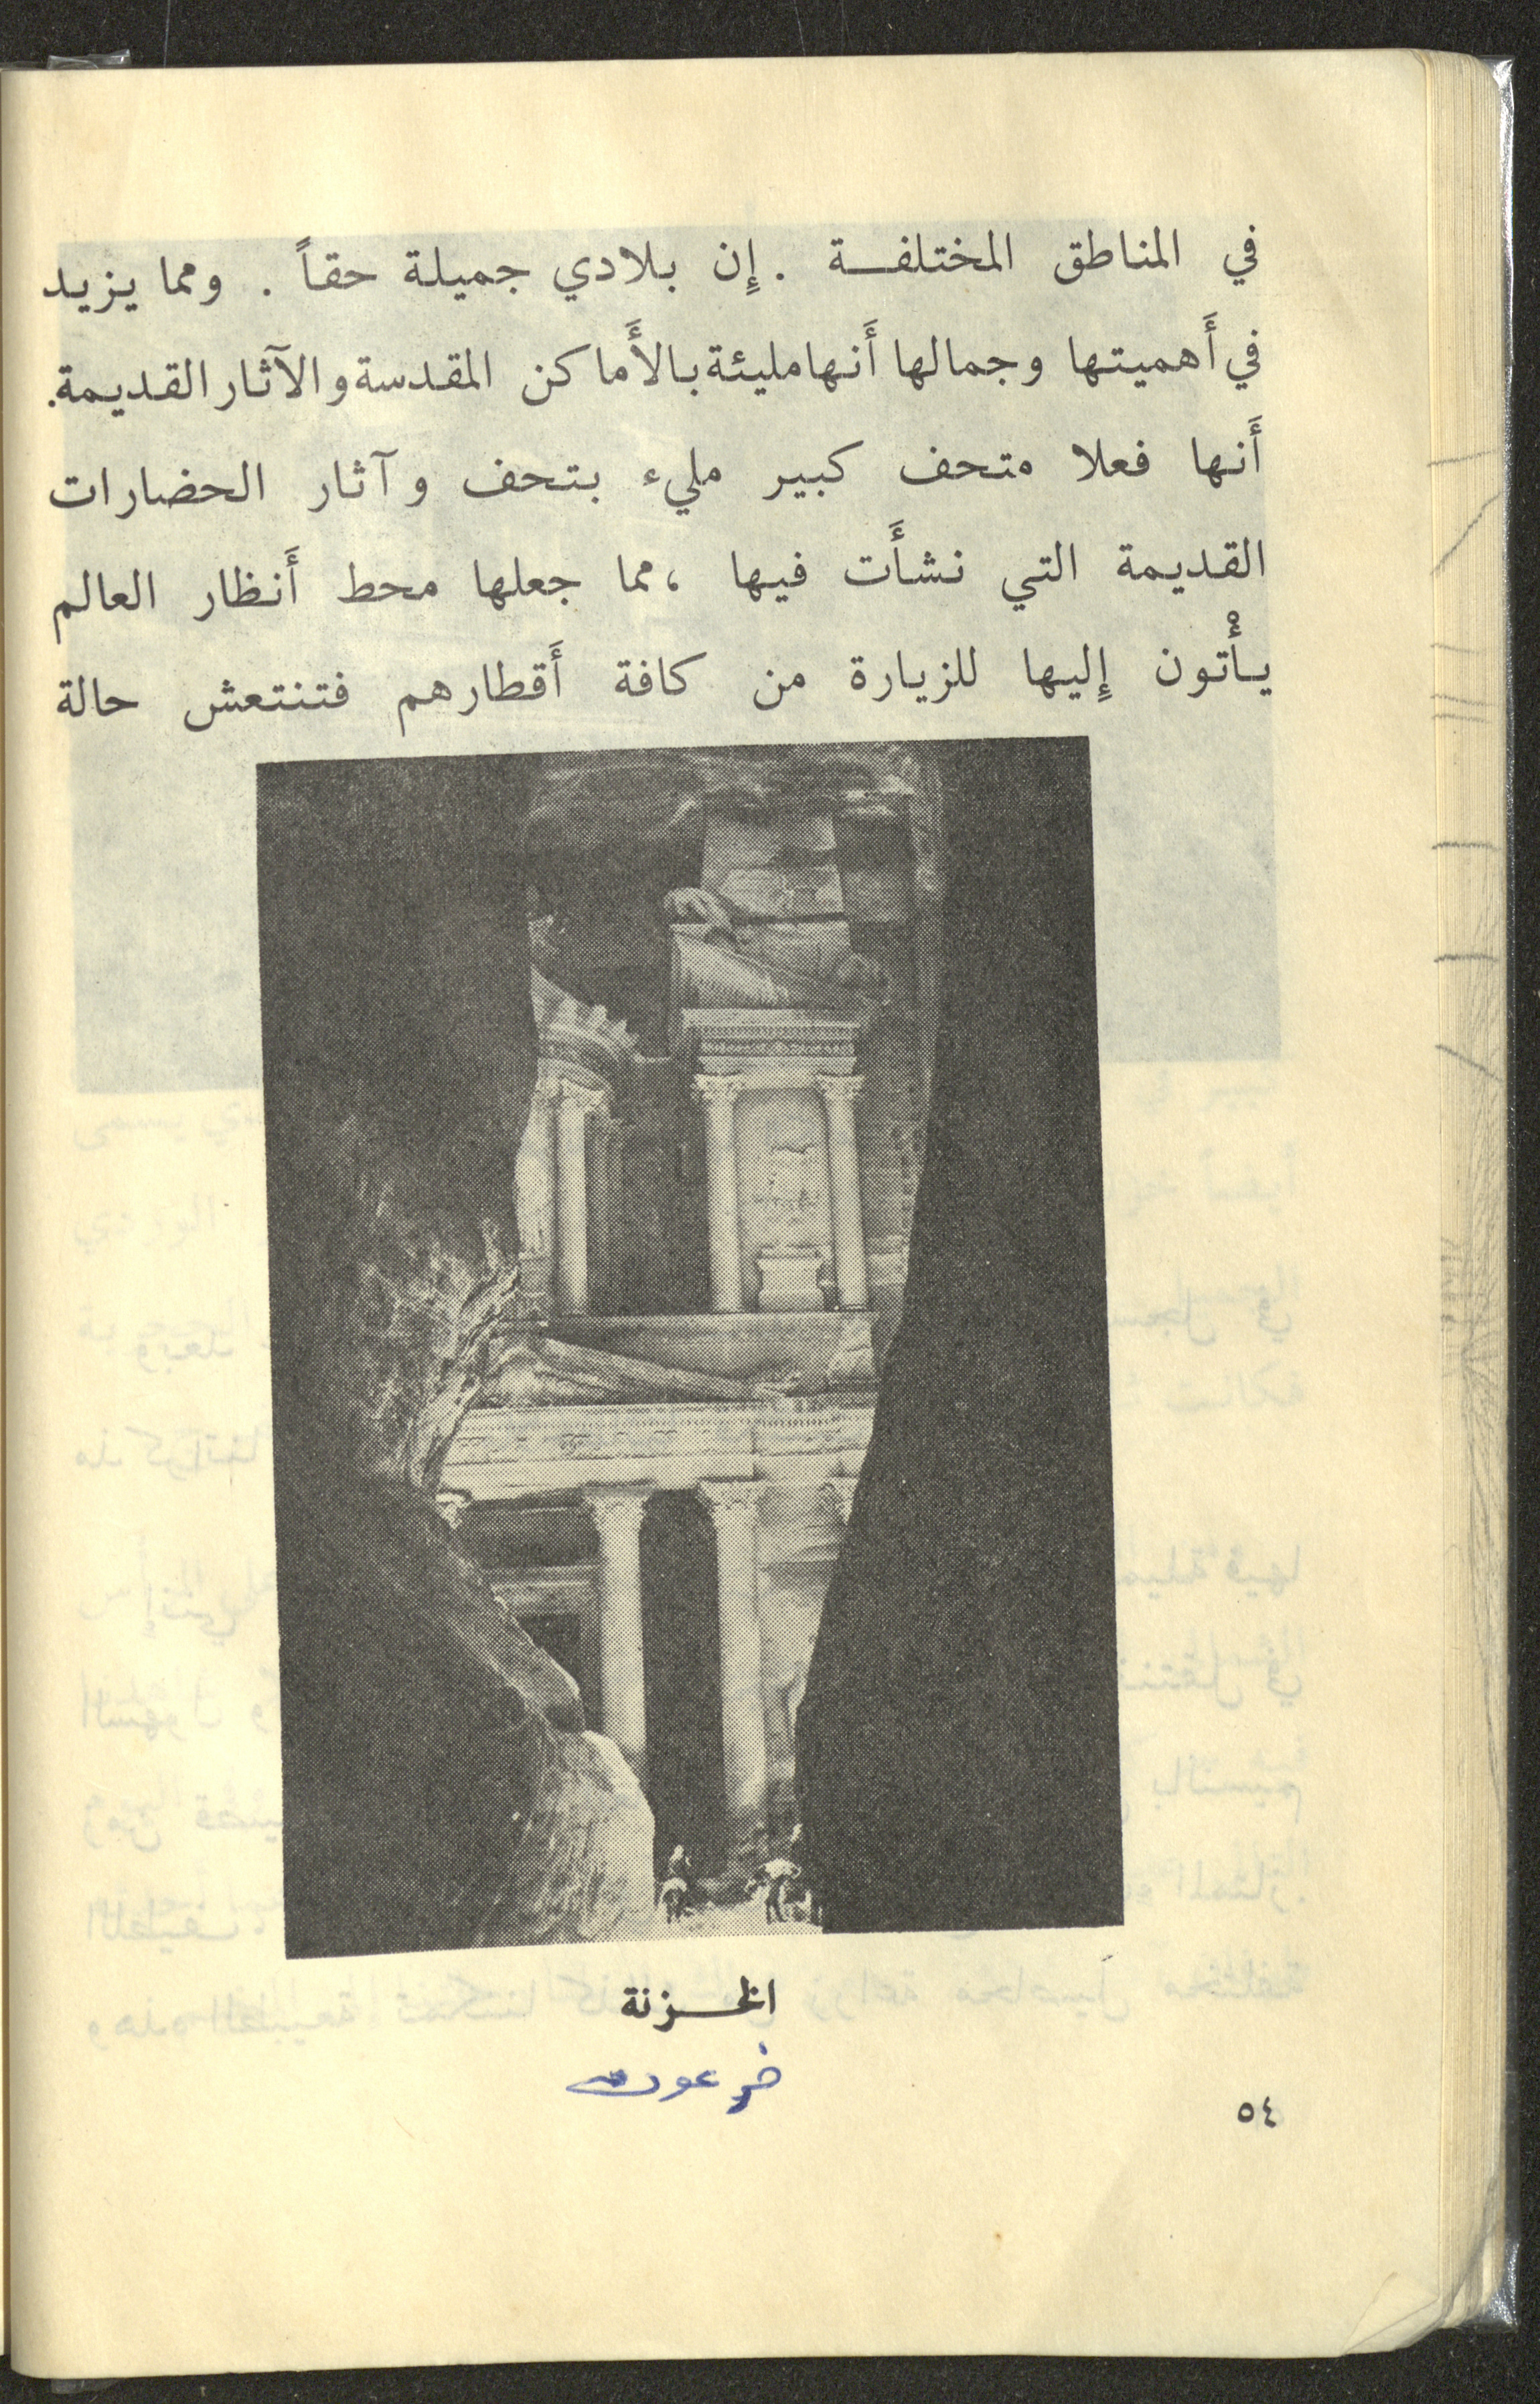 في المناطق المختلفـــة . إِن بلادي جميلة حقاً . ومما يزيد
في أَهميتها وجمالها أَنها مليئة بالأَماكن المقدسة والآثار القديمة.
أَنها فعلا متحف كبير مليء بتحف وآثار الحضارات
القديمة التي نشأَت فيها ، مما جعلها محط أَنظار العالم
يأْتون إِليها للزيارة من كافة أَقطارهم فتنتعش حالة
الخـــزنة
فرعون
٥٤